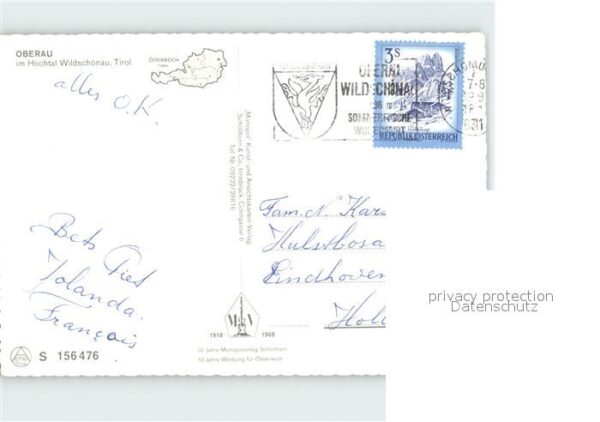 OBERAU
im Hochtal Wildschönau, Tirol
ÖSTERREICH
TIROL
alles O.K.
Bets Piet
Yolanda.
Français
S 156476
"Monopol" Kunst- und Ansichtskarten-Verlag
Schöllhorn & Co., Innsbruck, Colingasse 6
Tel Nr. 05222/29816
1918 1968
50 Jahre Monopolverlag Schöllhorn
50 Jahre Werbung für Österreich
3S
REPUBLIK ÖSTERREICH
OBERAU
WILDSCHÖNAU
SOMMERFRISCHE
WINTERSPORT
Fam. N. Kara
Hulstbosa
Eindhoven
Holl
privacy protection
Datenschutz